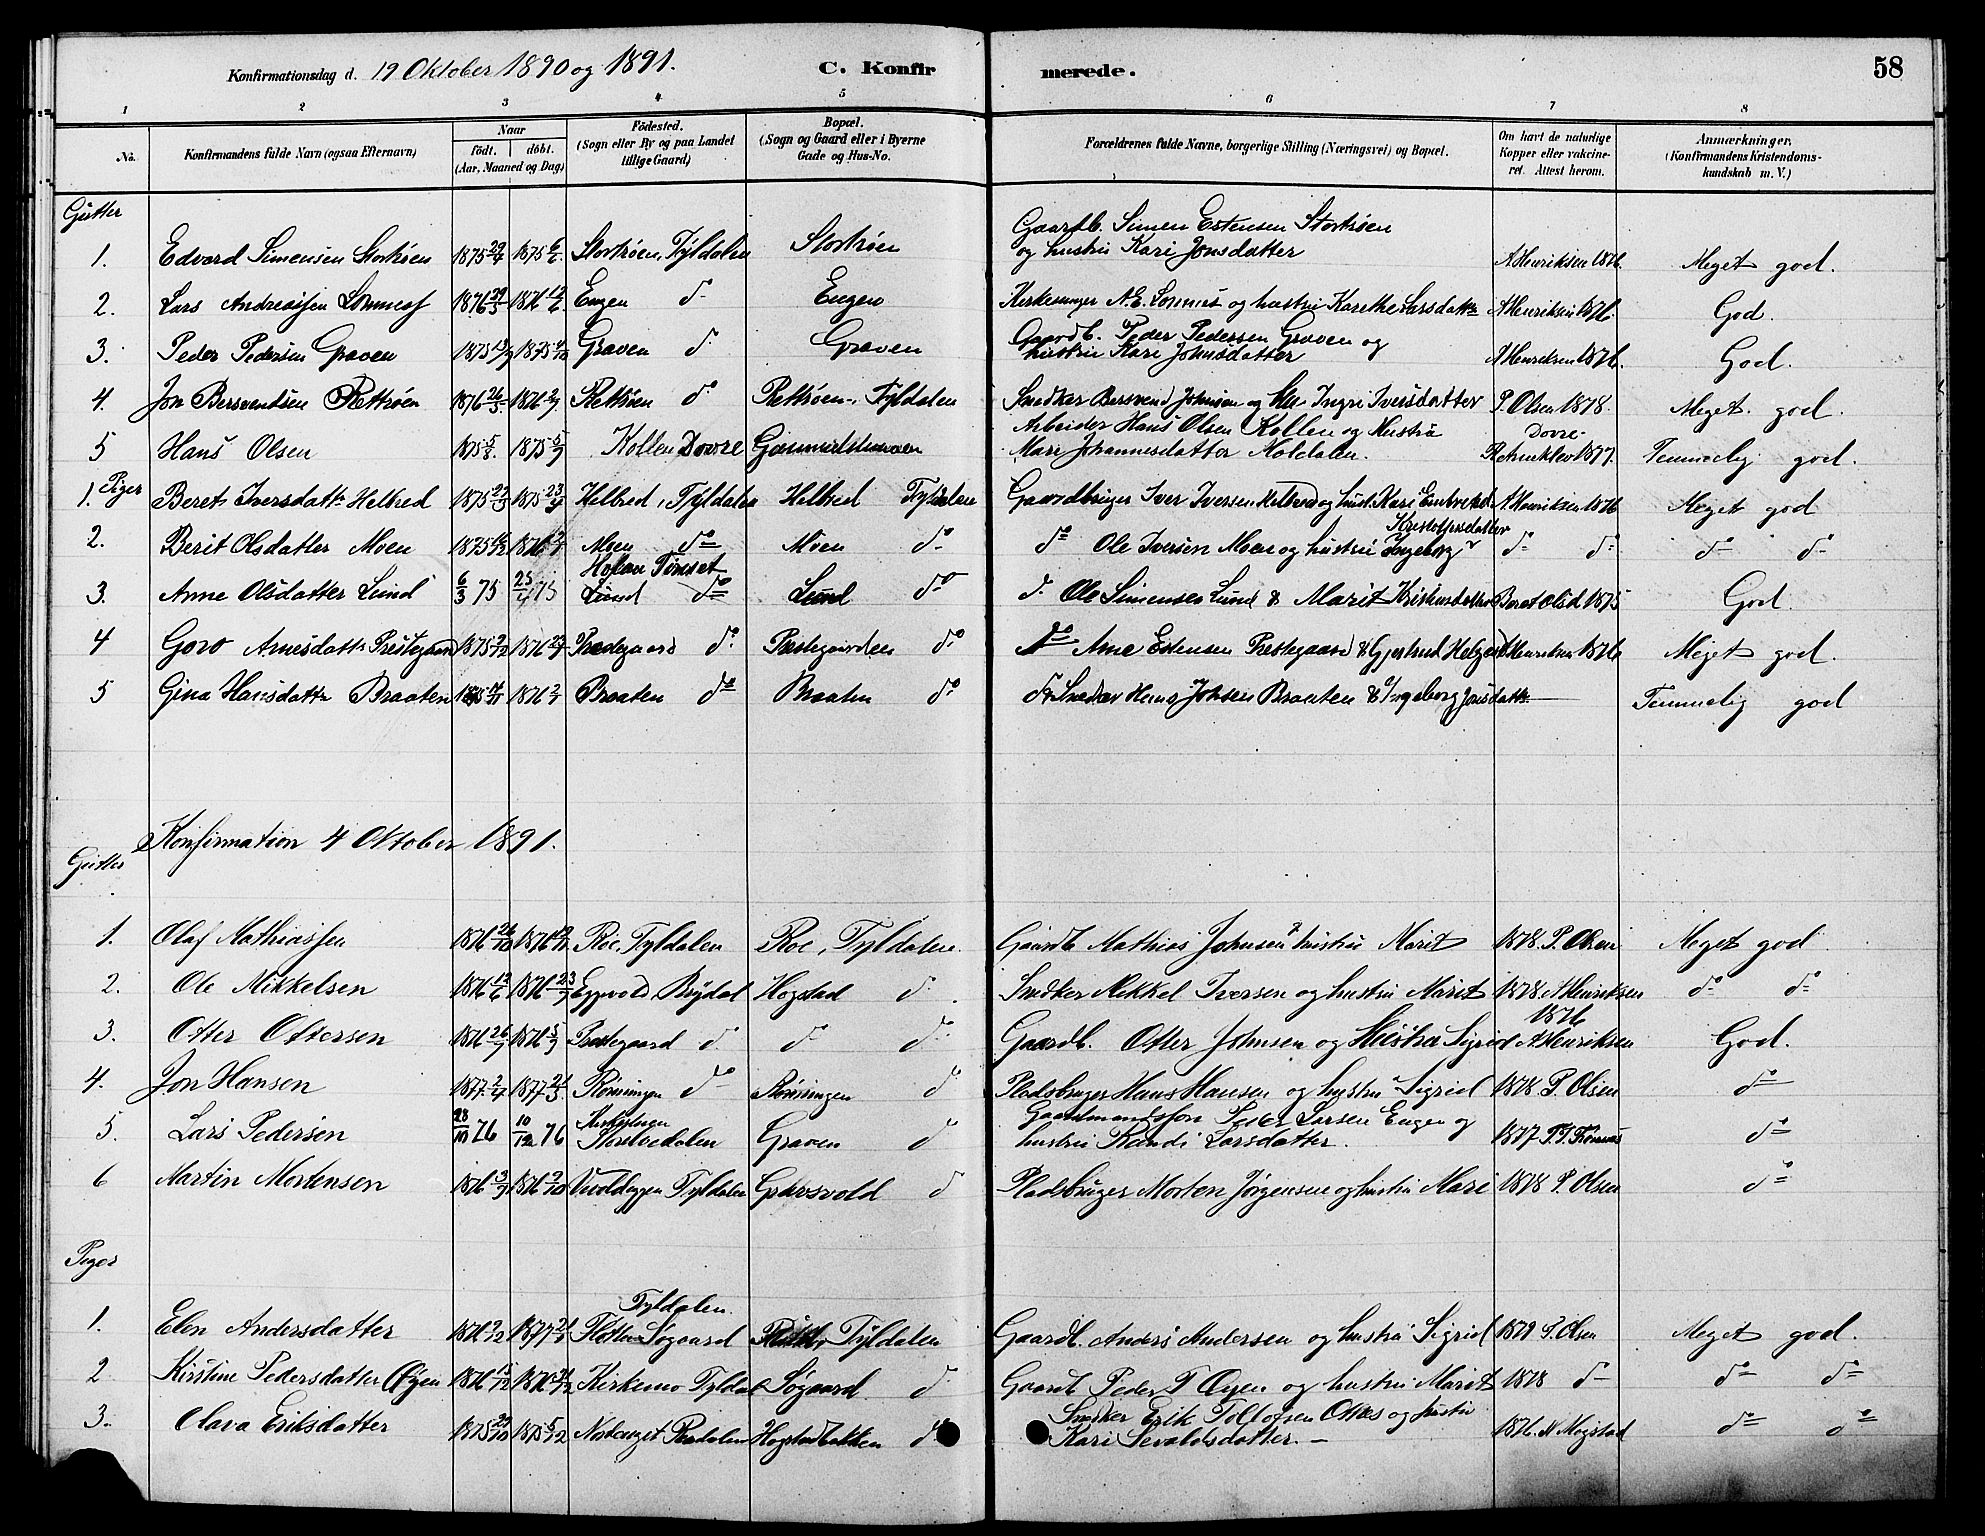 Konfirmationsdag d. 19 Oktober 1890 og 1891. C. Konfirmerede. 58
1 2 3 4 5 6 7 8
No. Konfirmandens fulde Navn (ogsaa Efternavn) Naar født. døbt. (Aar, Maaned og Dag) Fødested. (Sogn eller By og paa Landet tillige Gaard) Bopæl. (Sogn og Gaard eller i Byerne Gade og Hus-No. Forældrenes fulde Navne, borgerlige Stilling (Næringsvei) og Bopæl. Om havt de naturlige Kopper eller vakcineret. Attest herom. Anmærkninger. (Konfirmandens Kristendomskundskab m. V.)
Gutter
1. Edvard Simensen Storkøen 1875 29/4 1875 6/6 Storkøen, Tyldalen Storkøen Gaardb. Simen Estensen Storkøen og hustru Kari Jonsdatter A Henriksen 1876. Meget god.
2. Lars Andreassen Lonmes 1876 29/3 1876 12/6 Eugen do Eugen Kirkesanger A. E. Lonmes og hustru Karethe Larsdatter A Henriksen 1876. God.
3. Peder Pedersen Graven 1875 1875 Graven do Graven Gaardb. Peder Pedersen Graven og hustru Kari Johnsdatter A Henriksen 1876. God.
4. Jon Bersvendsen Rettrøen 1876 26/5 1876 2/7 Rettrøen do Rettrøen, Tyldalen Snedker Bersvend Johnsen og Hu. Ingri Iversdatter P. Olsen 1878. Meget god.
5 Hans Olsen 1875 5/8. 1875 5/9 Kollen Dovre Arbeider Hans Olsen Kollen og Hustru Mari Johannesdatter Dovre 1877. Temmelig god.
Piger
1. Beret Iversdatter Helbred 1875 1875 Helbred, Tyldalen Helbred Tyldalen Gaardbruger Iver Iversen Helbred og hust. Kari Embretsd. A Henriksen 1876 Meget god
2. Berit Olsdatter Moen 1875 1876 Moen do Moen do do Ole Iversen Moen og hustru Ingeborg Kristoffersdatter do do do do
3. Anne Olsdatter Lund 6/3 75 25/4 75 Holen Tønset Lund do Lund do d. Ole Simensen Lund & Marit Kristensdatter Beret Olsd 1875 God.
4 Goro Arnesdatter Prestegaard 1875 1876 Prestegaard do Prestegaarden do do Arne Estensen Prestegaard & Gjertrud Helges A Henriksen 1876 Meget god.
5 Gina Hansdatter Braaten 1875 1876 Braaten do Braaten do do Snedker Hans Johsen Braaten & Ingeborg Jonsdatter — Temmelig god
Konfirmation 4 Oktober 1891.
Gutter
1. Olaf Mathiassen 1876 26/10 1876 Roe, Tyldalen Roe, Tyldalen. Gaardb Mathias Johnsen & hustru Marit 1878. P. Olsen Meget god
2. Ole Mikkelsen 1876 12/6 1876 23/7 Eggvold, Brydal Hogstad do. Snedker Mikkel Iversen og hustru Marit 1878. A Henriksen do do
3. Otter Ottersen 1876 26/7 1876 5/9 Prestegaard do do do Gaardb. Otter Johnsen og Hustru Sigrid 1876 A Henriksen God.
4. Jon Hansen 1877 2/4 1877 21/5 Rønningen do Rønningen do Pladsbruger Hans Hansen og hustru Sigrid 1878 P. Olsen do
5. Lars Pedersen 28/10 76 10/12 76 Storelvedalen Graven do Gaardmandssøn Peder Larsen Eugen og hustru Randi Larsdatter. 1877 do
6 Martin Mortensen 1876 3/9 1876 Tyldalen Grøsvold do Pladsbruger Morten Jørgensen og hustru Mari 1878 P. Olsen do
Piger
1. Elen Andersdatter 1876 1877 Tyldalen Søgaard Tyldalen Gaardb. Anders Andersen og hustru Sigrid 1879 P. Olsen Meget god.
2 Kirstine Pedersdatter Øyen 1876 15/12 1876 Kirkemo Tyldal Søgaard do Gaardb Peder T Øyen og hustru Marit 1878 do do do
3. Olava Eriksdatter 1875 29/10 1875 5/12 Rendalen Hogstadbakken do Snedker Erik Tollofsen og hustru Kari Sevaldsdatter. — 1876. N Mogstad do do